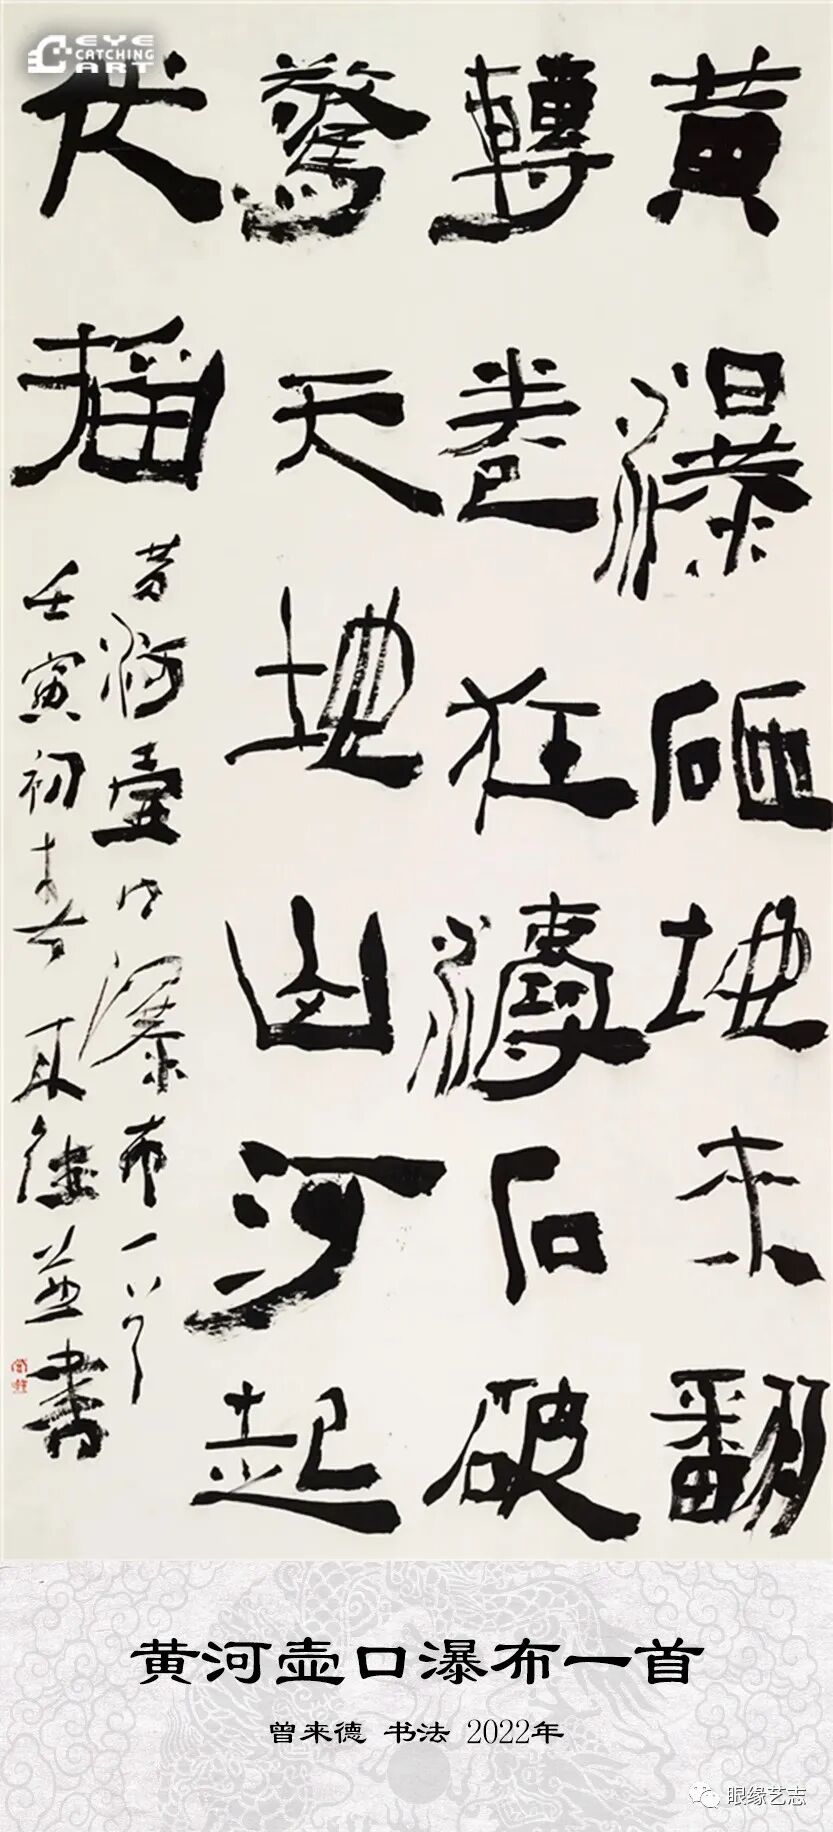 EYE
CATCHING
ART
黄瀑砸地来翻
轉卷狂濤石破
驚天地山河起
伏摇
黄河壺口瀑布一首
壬寅初春来德並書
黄河壶口瀑布一首
曾来德 书法 2022年
眼缘艺志